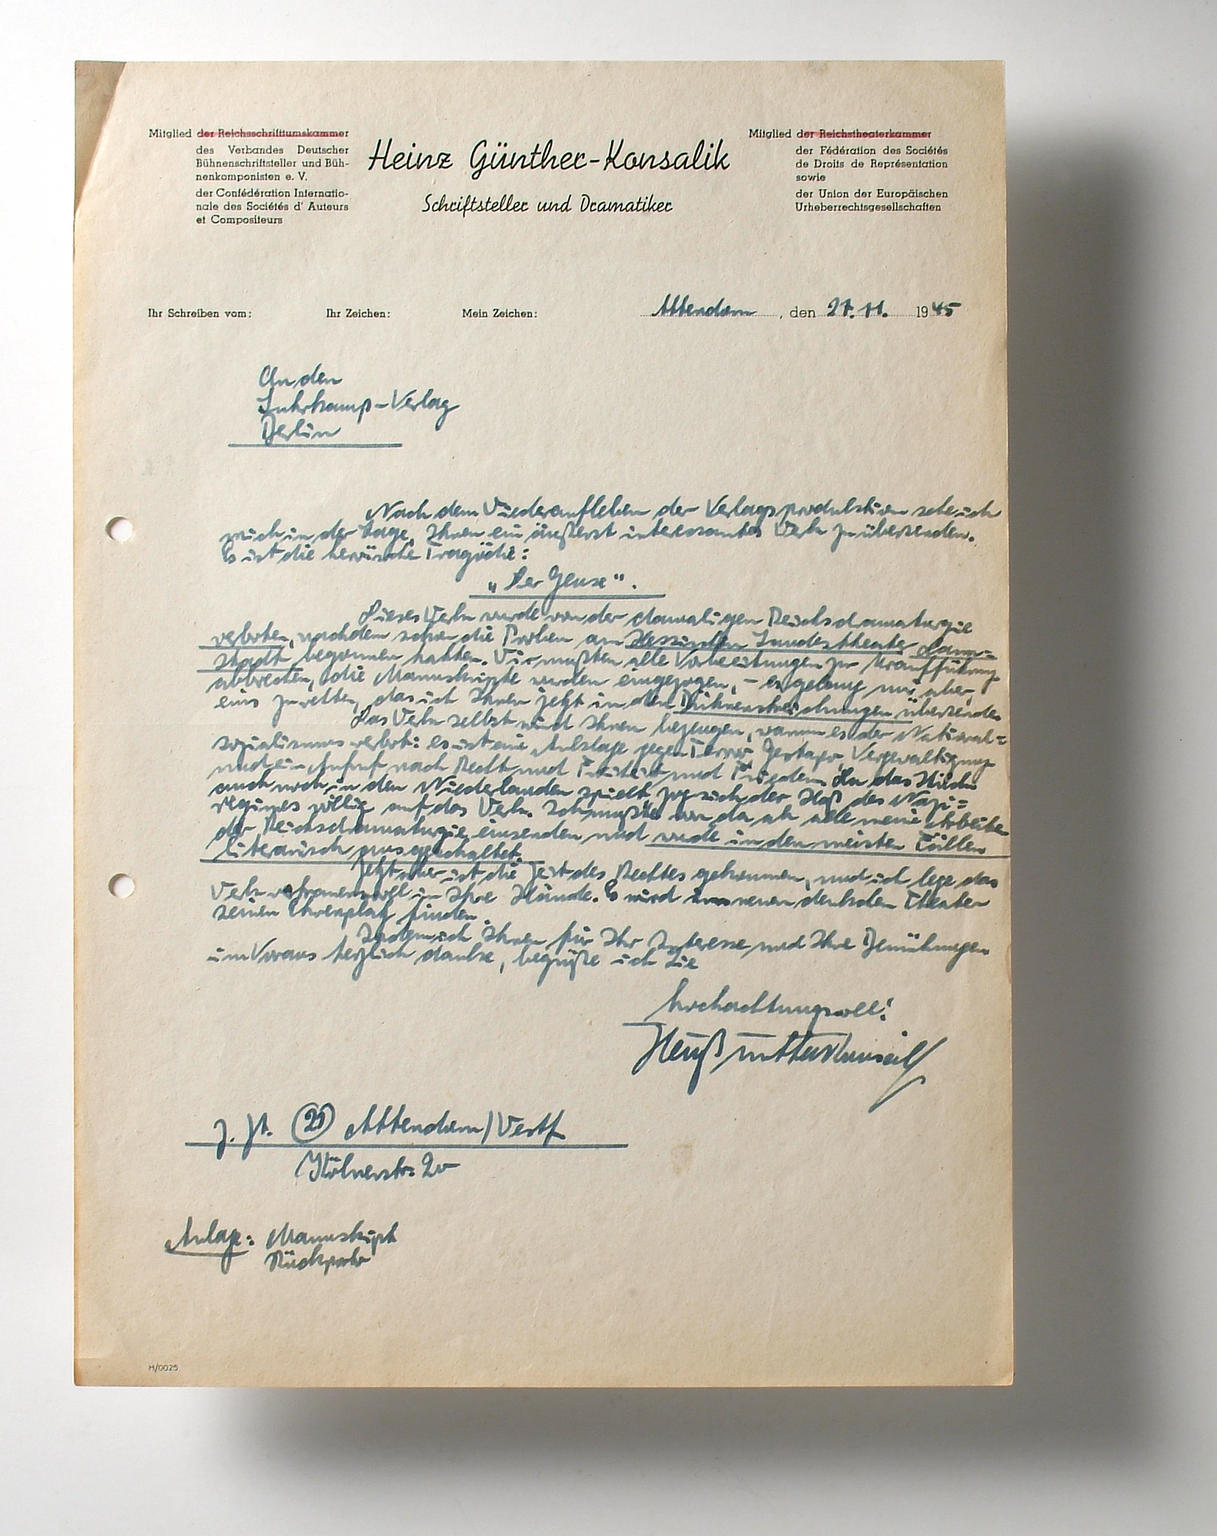 Mitglied der Reichsschrifttumskammer
des Verbandes Deutscher
Bühnenschriftsteller und Büh-
nenkomponisten e. V.
der Confédération Internatio-
nale des Sociétés d' Auteurs
et Compositeurs
Heinz Günther-Konsalik
Schriftsteller und Dramatiker
Mitglied der Reichstheaterkammer
der Fédération des Sociétés
de Droits de Représentation
sowie
der Union der Europäischen
Urheberrechtsgesellschaften
Ihr Schreiben vom: Ihr Zeichen: Mein Zeichen: Attendorn, den 27. 11. 1945
An den
Suhrkamp-Verlag
Berlin
Nach dem Wiederaufleben der Verlagsproduktion sehe ich
mich in der Lage, Ihnen ein äußerst interessantes Werk zu übersenden.
Es ist die heroische Tragödie:
„Der Geuse".
Dieses Werk wurde von der damaligen Reichsdramaturgie
verboten, nachdem schon die Proben am Hessischen Landestheater Darm-
stadt begonnen hatten. Wir mußten alle Vorbereitungen zur Uraufführung
abbrechen, die Manuskripte wurden eingezogen, – es gelang mir aber,
eins zu retten, das ich Ihnen jetzt in den Bühnenstreichungen übersende.
Das Werk selbst wird Ihnen bezeugen, warum es der National-
sozialismus verbot: es ist eine Anklage gegen Terror, Gestapo, Vergewaltigung
und ein Aufruf nach Recht und Freiheit und Frieden. Da das Stück
auch noch in den Niederlanden spielt, zog sich der Haß des Nazi-
regimes völlig auf das Werk. Ich mußte von da ab alle meine Arbeiten
der Reichsdramaturgie einsenden und wurde in den meisten Fällen
literarisch ausgeschaltet.
Jetzt aber ist die Zeit des Rechtes gekommen, und ich lege das
Werk vertrauensvoll in Ihre Hände. Es wird im neuen deutschen Theater
seinen Ehrenplatz finden.
Indem ich Ihnen für Ihr Interesse und Ihre Bemühungen
im Voraus herzlich danke, begrüße ich Sie
hochachtungsvoll!
z. Zt. (21) Attendorn/Westf
Kölnerstr. 20
Anlage: Manuskript
Rückporto
H/0025